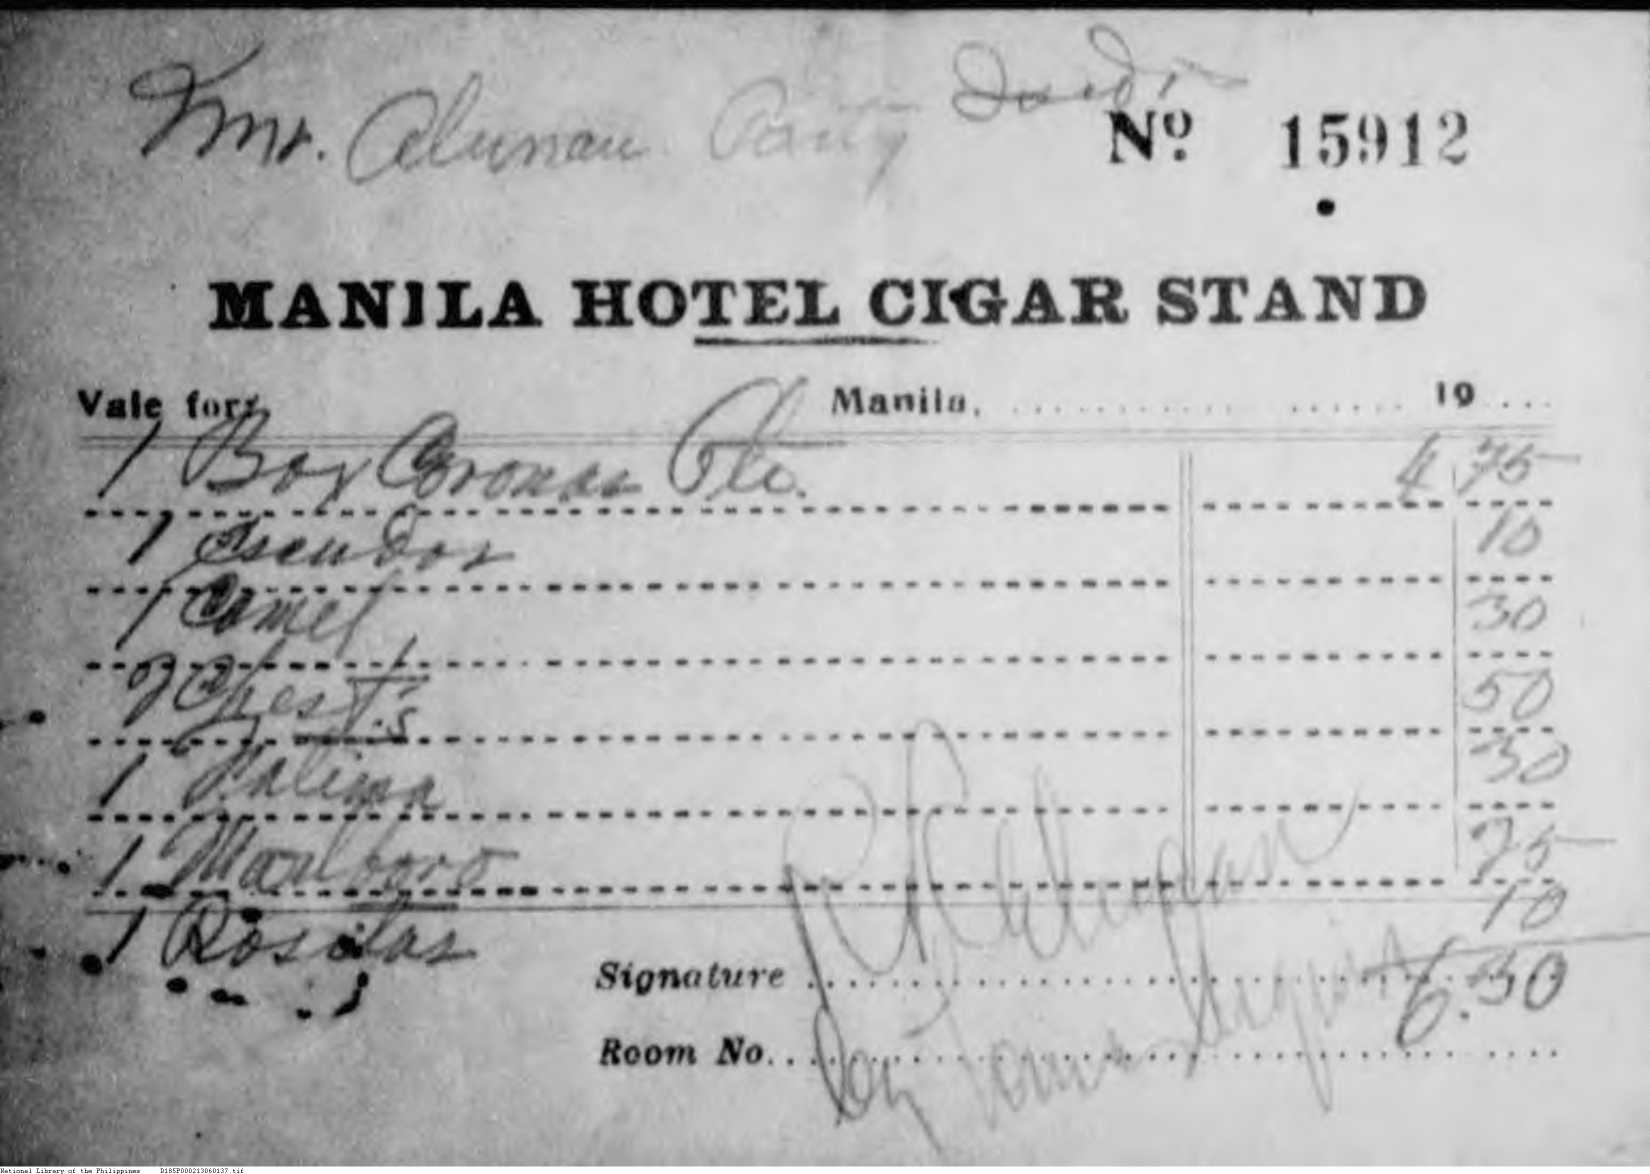 Mr. Alunan Party
Nº 15912
MANILA HOTEL CIGAR STAND
Vale for: Manila, 19
1 Box Coronas Pto. 4 75
1 Escudos 10
1 Camel 30
2 Chest.s 50
1 Fatima 30
1 Marlboro 25
1 Rositas 10
Signature R Alunan 6.30
Room No. By
National Library of the Philippines D185P000213060137.tif